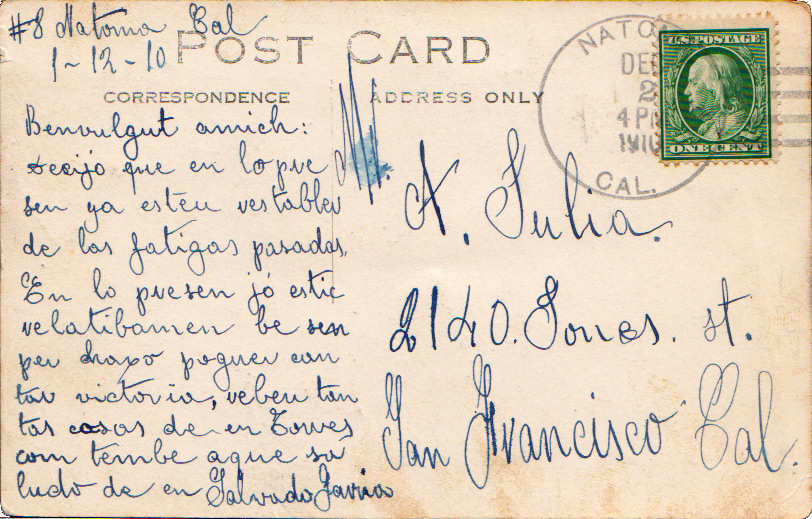 #8 Natoma Cal
1-12-10
POST CARD
CORRESPONDENCE
ADDRESS ONLY
NATO
DE
2
4 P
1910
CAL.
U.S. POSTAGE
ONE CENT
Benvulgut amich:
que en lo pre
sen ya esteu restabler
de las fatigas pasadas,
En lo presen jó estic
relatibamen be sen
per chaxó poguer can
tar victoria, rebeu tan
tas cosas de en Torres
com tembe aque sa
ludo de en Salvado Javria
Mr.
A. Julia.
2140. Jones. st.
San Francisco Cal.